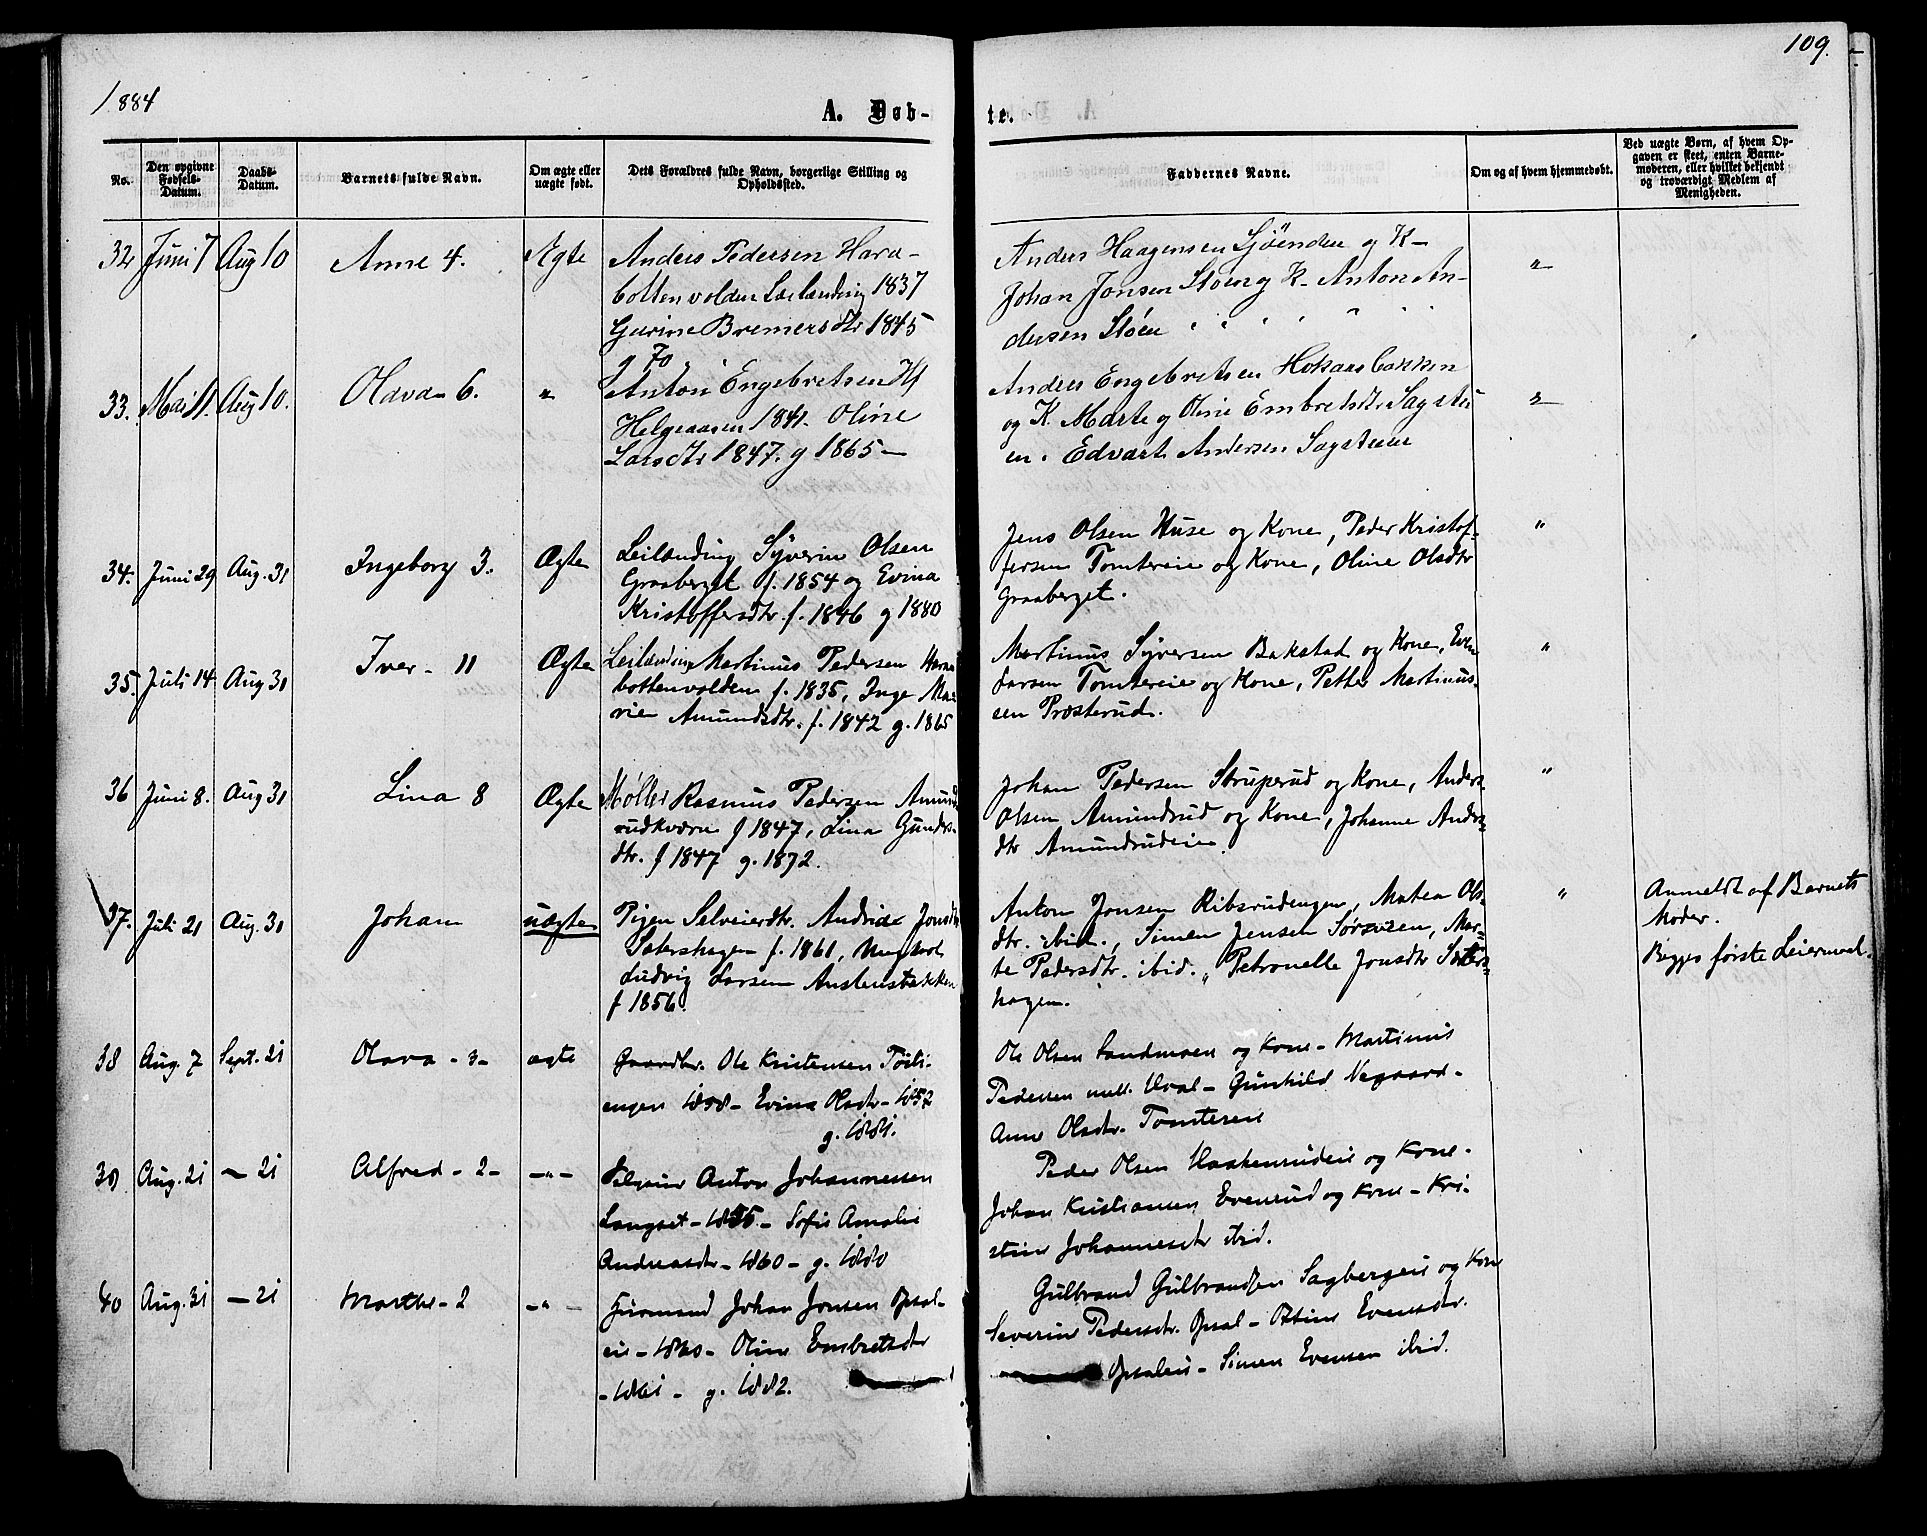 109.
1884
A. Døb-
te.
No.
Den opgivne Fødsels-Datum.
Daabs-Datum.
Barnets fulde Navn.
Om ægte eller uægte født.
Dets Forældres fulde Navn, borgerlige Stilling og Opholdssted.
Faddernes Navne.
Om og af hvem hjemmedøbt.
Ved uægte Børn, af hvem Opgaven er skeet, enten Barnemoderen, eller hvilket bekjendt og troværdigt Medlem af Menigheden.
32 Juni 7 Aug 10 Anne 4. Ægte
Anders Pedersen Hara-
bottenvolden Leilænding 1837
Gurine Bremersdtr 1845
g 70.
Anders Haagensen Sjøenden og K-
Johan Jonsen Støen og K- Anton An-
dersen Støen
"
33. Mai 11. Aug 10. Olava - 6. "
Anton Engebretsen Hf
Helgeaasen 1841. Oline
Larsdtr 1847. g 1865 -
Anders Engebretsen Hokaasbakken
og K. Marte og Oline Embretsdtr Sagstu-
en. Edvart Andersen Sagstuen
"
34. Juni 29 Aug. 31 Ingeborg 3. Ægte
Leilænding Syverin Olsen
Graaberget f. 1854 og Evina
Kristoffersdtr. f. 1846 g 1880
Jens Olsen Huse og Kone, Peder Kristof-
fersen Tomtereie og Kone, Oline Olsdtr
Graaberget.
"
35. Juli 14. Aug 31 Iver - 11 Ægte
Leilænding Martinus Pedersen Hara
bottenvolden f. 1835, Inge Ma-
rie Amundsdtr. f. 1842 g. 1865
Martinus Syversen Bakstad og Kone, Even
Larsen Tomtereie og Kone, Petter Martinus-
sen Prosterud.
"
36 Juni 8. Aug 31 Lina 8 Ægte
Møller Rasmus Pedersen Amund
rudkværn f 1847, Lina Gunders-
dtr. f 1847 g. 1872.
Johan Pedersen Struperud og Kone, Anders
Olsen Amundrud og Kone, Johanne Anders-
dtr Amundrudeie.
"
37. Juli 21 Aug. 31 Johan uægte
Pigen Selveierdtr. Andrine Jonsdtr
Sætershagen f. 1861, Ungkarl
Ludvig Larsen Austensbakken
f 1856.
Anton Jonsen Ribsrudengen, Matea Ols-
dtr. ibid., Simen Jensen Sørøisen, Mar-
te Pedersdtr. ibid., Petronelle Jonsdtr Sæters-
hagen.
"
Anmeldt af Barnets
Moder.
Begges første Leiermaal.
38 Aug. 7 Sept. 21 Olava - 3 - ægte
Gaardbr. Ole Kristensen Tøili-
engen 1858 - Evina Olsdtr - 1857
g. 1881.
Ole Olsen Sandmoen og Kone - Martinus
Pedersen mell. Hval - Gunhild Negaard -
Anne Olsdtr. Tomtereie
39 Aug. 21 - 21 Alfred - 2 - - " -
Selveier Anton Johannessen
Langset - 1855 - Sofie Amalie
Andreasdtr - 1860 - g. 1880
Peder Olsen Haakensrudeie og Kone -
Johan Kristiansen Evenrud og Kone - Kri-
stine Johannesdtr ibid.
40 Aug. 31 - 21 Marthe - 2 - " -
Huusmand Johan Jonsen Opsal-
eie - 1860 - Oline Embretsdtr
- 1861 - g. 1882.
Gulbrand Gulbrandsen Sagbergeie og Kone
Severine Pedersdtr. Opsal - Ottine Evensdtr.
Opsaleie - Simen Evensen ibid.